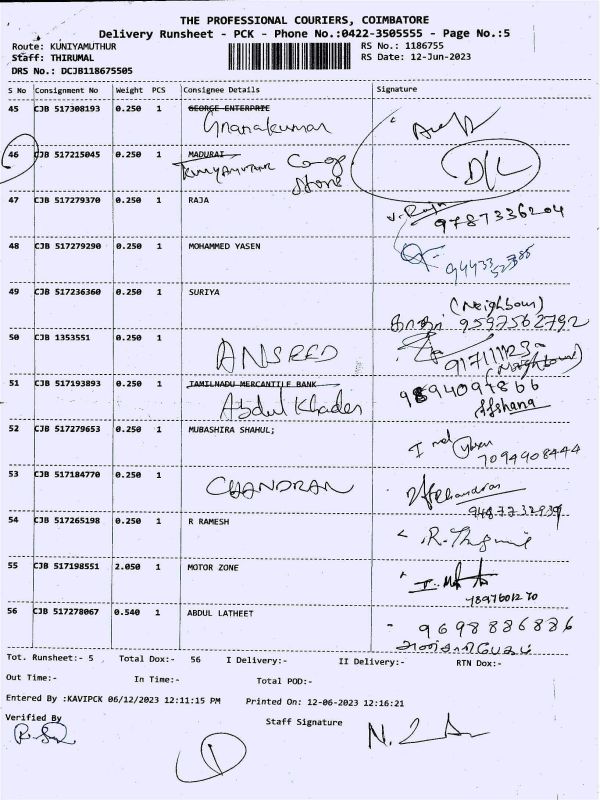 THE PROFESSIONAL COURIERS, COIMBATORE
Delivery Runsheet - PCK - Phone No.:0422-3505555 - Page No.:5
Route: KUNIYAMUTHUR RS No.: 1186755
Staff: THIRUMAL RS Date: 12-Jun-2023
DRS No.: DCJB118675505
S No Consignment No Weight PCS Consignee Details Signature
45 CJB 517308193 0.250 1 GEORGE ENTERPRIC
Gnanakumar
46 CJB 517215045 0.250 1 MADURAI
Co-op Store D/L
47 CJB 517279370 0.250 1 RAJA V. Raja
9787336204
48 CJB 517279290 0.250 1 MOHAMMED YASEN
49 CJB 517236360 0.250 1 SURIYA (Neighbour)
9597562792
50 CJB 1353551 0.250 1
ANSEED
51 CJB 517193893 0.250 1 TAMILNADU MERCANTILE BANK 9894097866
Abdul Khader Afshana
52 CJB 517279653 0.250 1 MUBASHIRA SHAHUL;
7094908444
53 CJB 517184770 0.250 1
CHANDRAN
54 CJB 517265198 0.250 1 R RAMESH
55 CJB 517198551 2.050 1 MOTOR ZONE
7897601270
56 CJB 517278067 0.540 1 ABDUL LATHEET 9698886886
Tot. Runsheet:- 5 Total Dox:- 56 I Delivery:- II Delivery:- RTN Dox:-
Out Time:- In Time:- Total POD:-
Entered By :KAVIPCK 06/12/2023 12:11:15 PM Printed On: 12-06-2023 12:16:21
Verified By Staff Signature